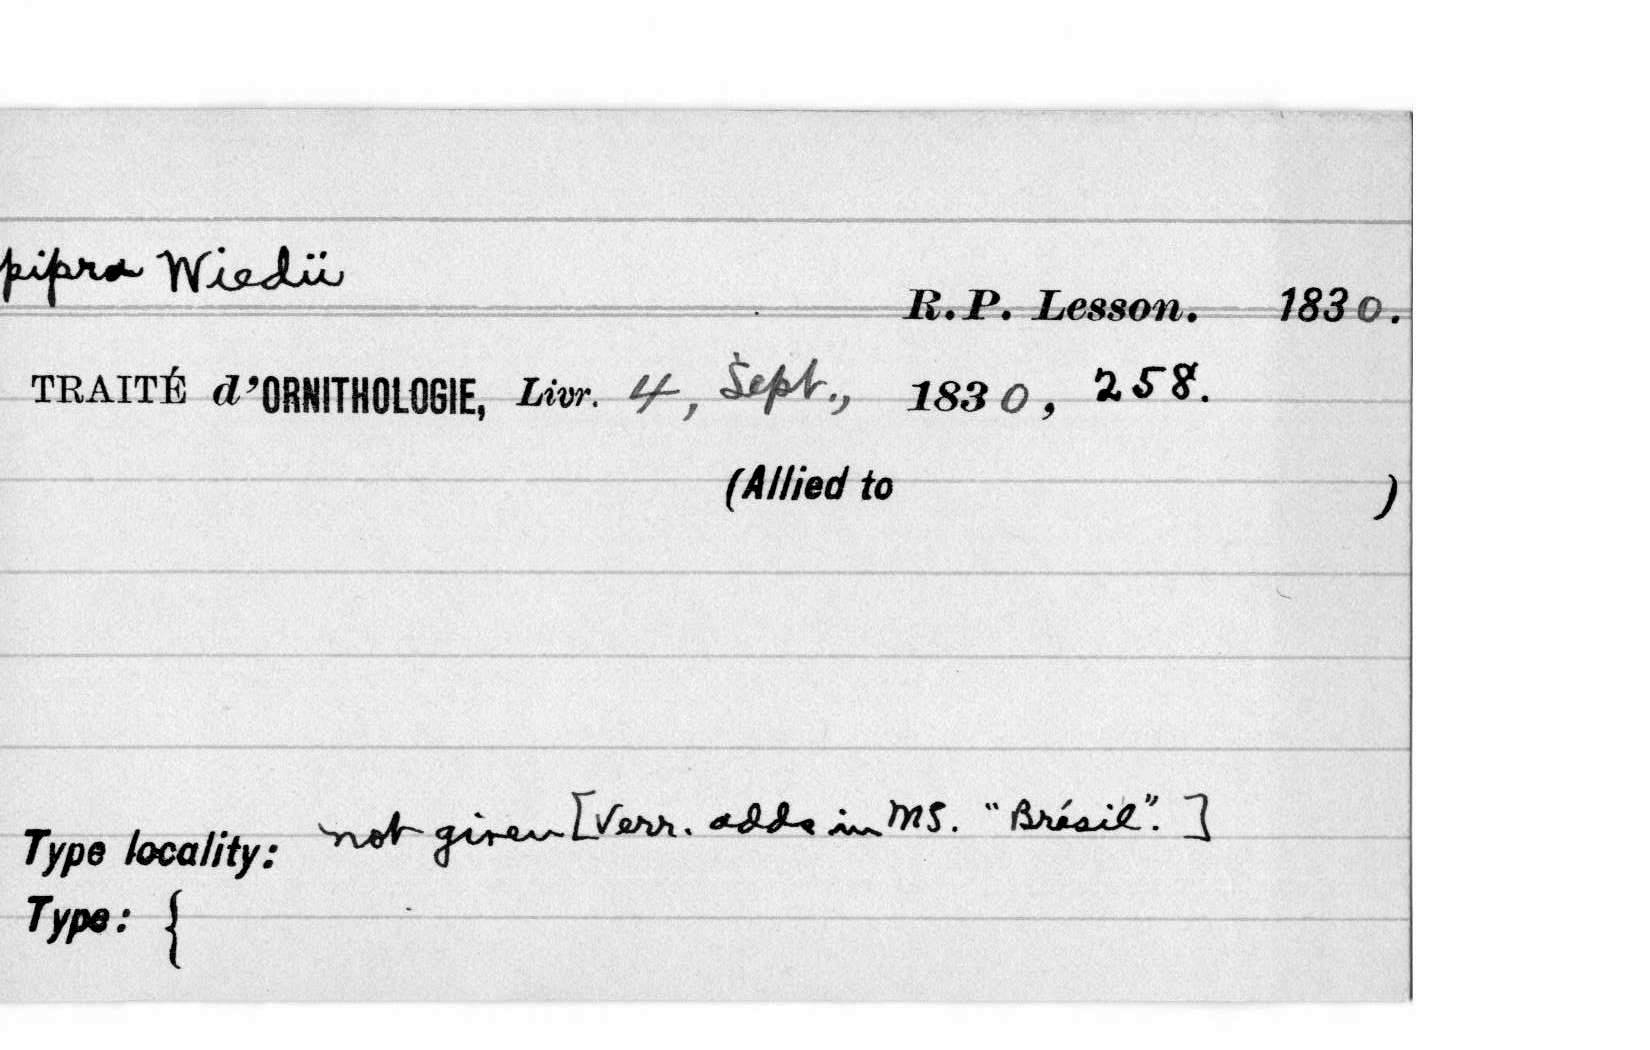 pipra Wiedii
R. P. Lesson. 1830.
TRAITÉ d'ORNITHOLOGIE, Livr. 4, Sept., 1830, 258.
(Allied to )
Type locality: not given [Verr. adds in MS. "Brésil". ]
Type: {